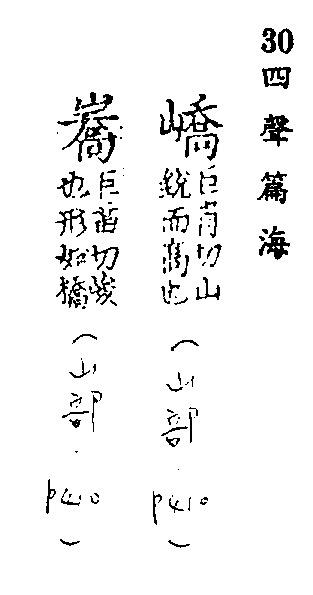 30四聲篇海
嶠巨肖切山銳而高也（山部．p410）
巨苗切峻也形如橋（山部．p410）